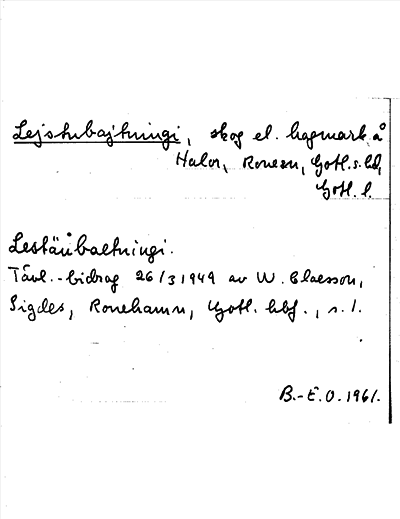 Lejstubajtningi, skog el. hagmark å
Halor, Ronesn, Gotl. s. hd,
Gotl. l.
Lestäubaetningi.
Tävl.-bidrag 26/3 1949 av W. Claesson,
Sigdes, Ronehamn, Gotl. hbf., s. l.
B.-E. O. 1961.